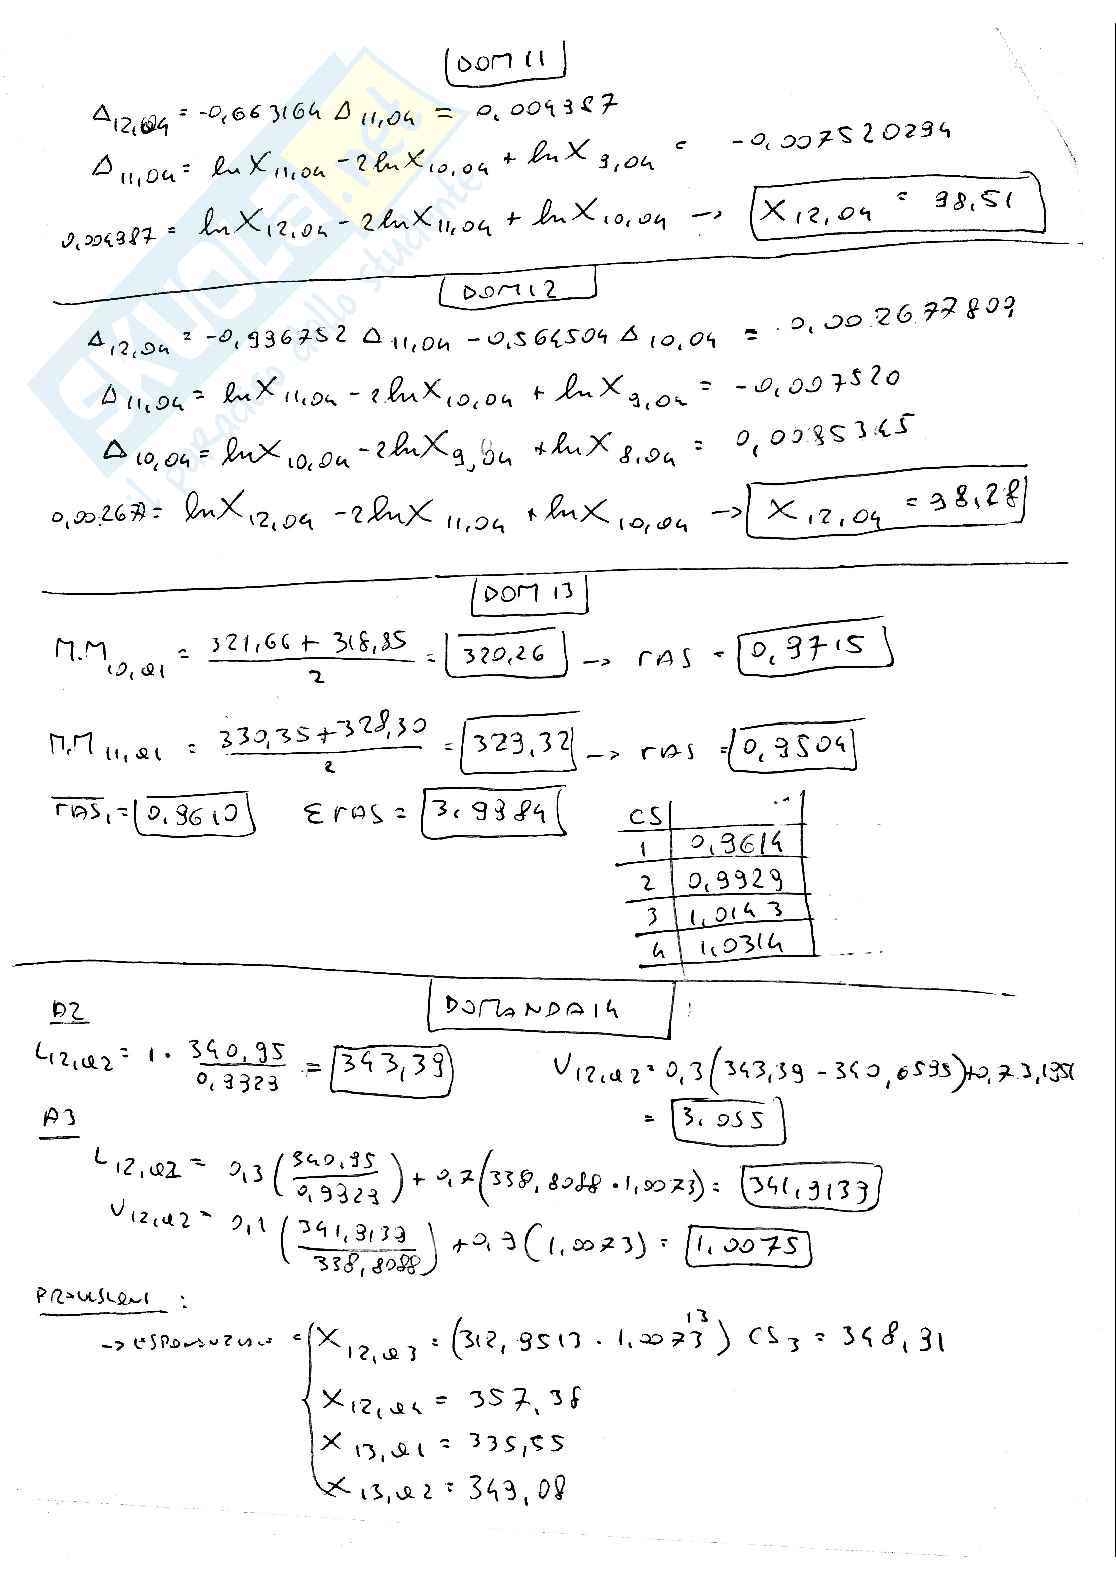 DOM 11
Δ12,Q4 = -0,663164 Δ11,Q4 = 0,004987
Δ11,Q4 = lnX11,Q4 - 2lnX10,Q4 + lnX9,Q4 = -0,007520294
0,004987 = lnX12,Q4 - 2lnX11,Q4 + lnX10,Q4 → X12,Q4 = 98,51
DOM 12
Δ12,Q4 = -0,936752 Δ11,Q4 - 0,564504 Δ10,Q4 = 0,002677809
Δ11,Q4 = lnX11,Q4 - 2lnX10,Q4 + lnX9,Q4 = -0,007520
Δ10,Q4 = lnX10,Q4 - 2lnX9,Q4 + lnX8,Q4 = 0,0085345
0,00267 = lnX12,Q4 - 2lnX11,Q4 + lnX10,Q4 → X12,Q4 = 98,28
DOM 13
M.M10,Q1 = 321,66 + 318,85 / 2 = 320,26 → rAS = 0,9715
M.M11,Q1 = 330,35 + 328,30 / 2 = 329,32 → rAS = 0,9504
rAS1 = 0,9610 ΣrAS = 3,9984
CS
1 0,9614
2 0,9929
3 1,0143
4 1,0314
DOMANDA 14
A2
L12,Q2 = 1 · 340,95 / 0,9929 = 343,39 V12,Q2 = 0,3(343,39 - 340,6595) + 0,7 3,1951
= 3,055
A3
L12,Q2 = 0,3(340,95 / 0,9929) + 0,7(338,8088 · 1,0073) = 341,9139
V12,Q2 = 0,1(341,9139 / 338,8088) + 0,9(1,0073) = 1,0075
PREVISIONI :
→ ESPONENZIALE = X12,Q3 = (312,9513 · 1,0073^13) CS3 = 348,91
X12,Q4 = 357,38
X13,Q1 = 335,55
X13,Q2 = 349,08
SKUOLA.net
il paradiso dello studente